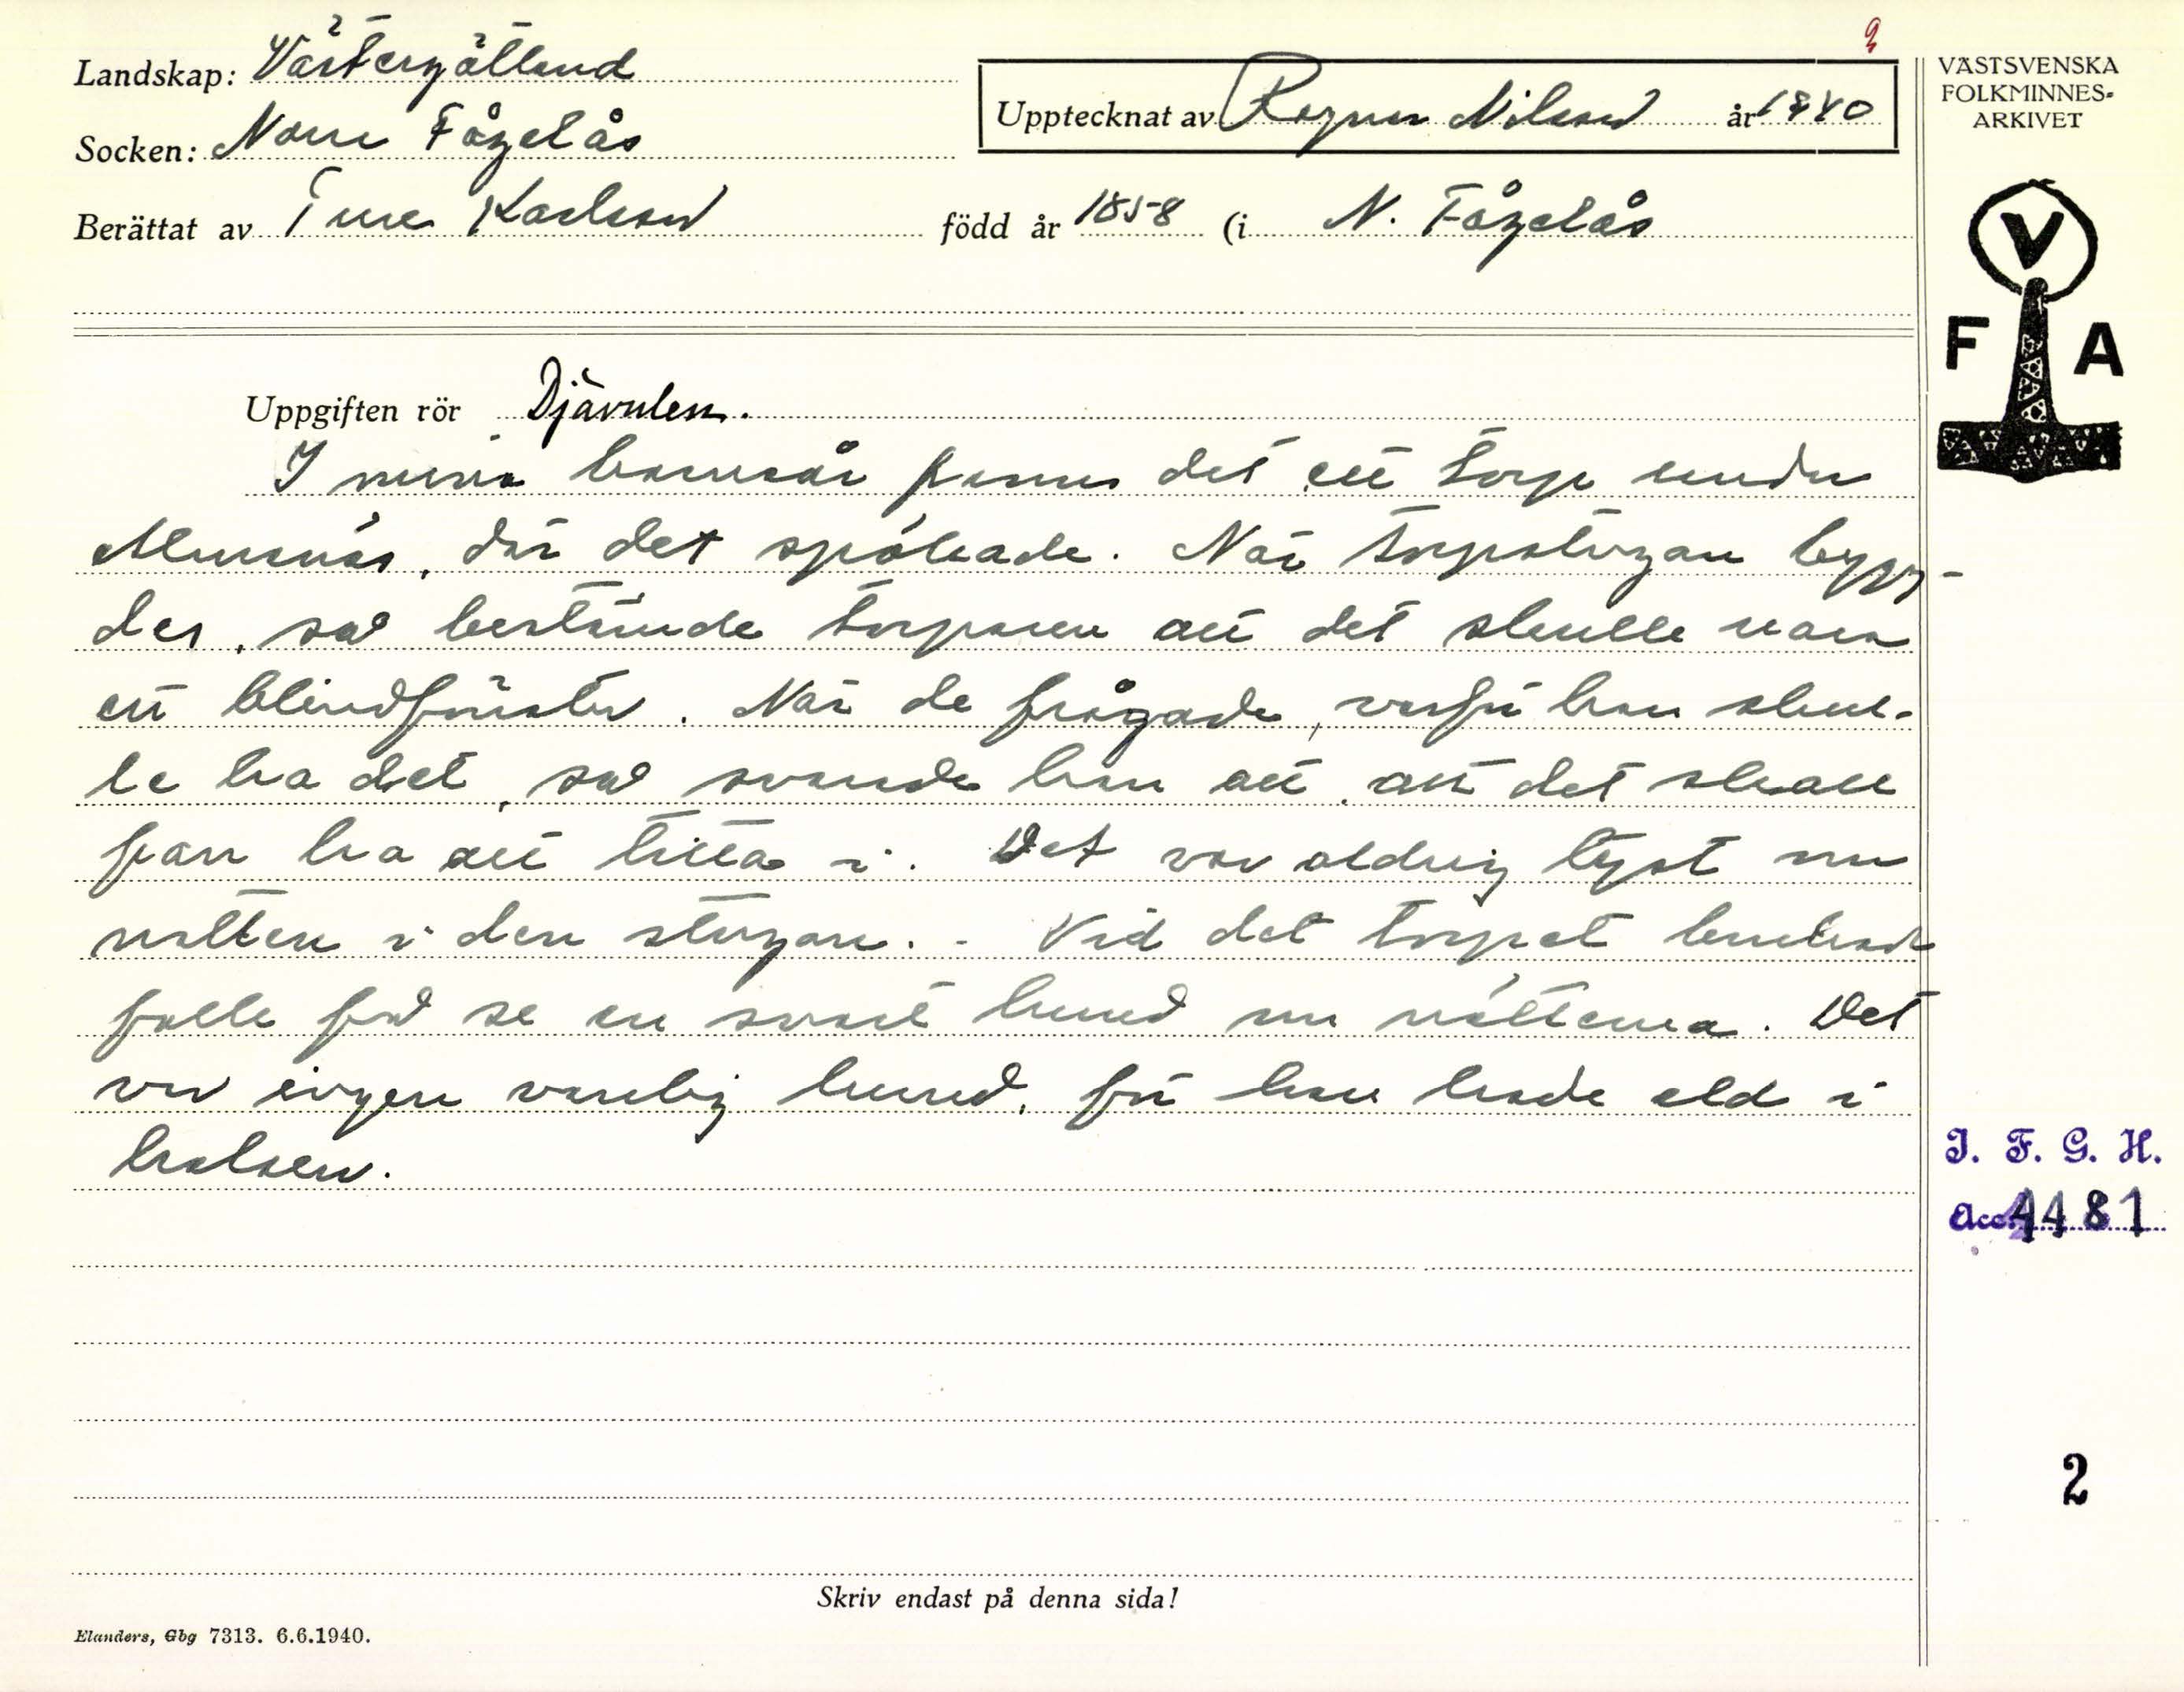 Landskap: Västergötland
Socken: Norra Fågelås
Berättat av Ture Karlsson född år 1858 (i N. Fågelås
Upptecknat av Ragnar Nilsson år 1940
VÄSTSVENSKA
FOLKMINNES-
ARKIVET
V
F A
Uppgiften rör Djävulen.
I mina barnaår fanns det ett torp under
Almnäs, där det spökade. När torpstugan bygg-
des, så bestämde torparen att det skulle vara
ett blindfönster. När de frågade, varför han skul-
le ha det, så svarade han att, att det skall
fan ha att titta i. Det var aldrig tyst om
natten i den stugan. - Vid det torpet brukade
folk få se en svart hund om nätterna. Det
var ingen vanlig hund, för han hade eld i
halsen.
I. F. G. H.
Acc. 4481
2
Skriv endast på denna sida!
Elanders, Gbg 7313. 6.6.1940.